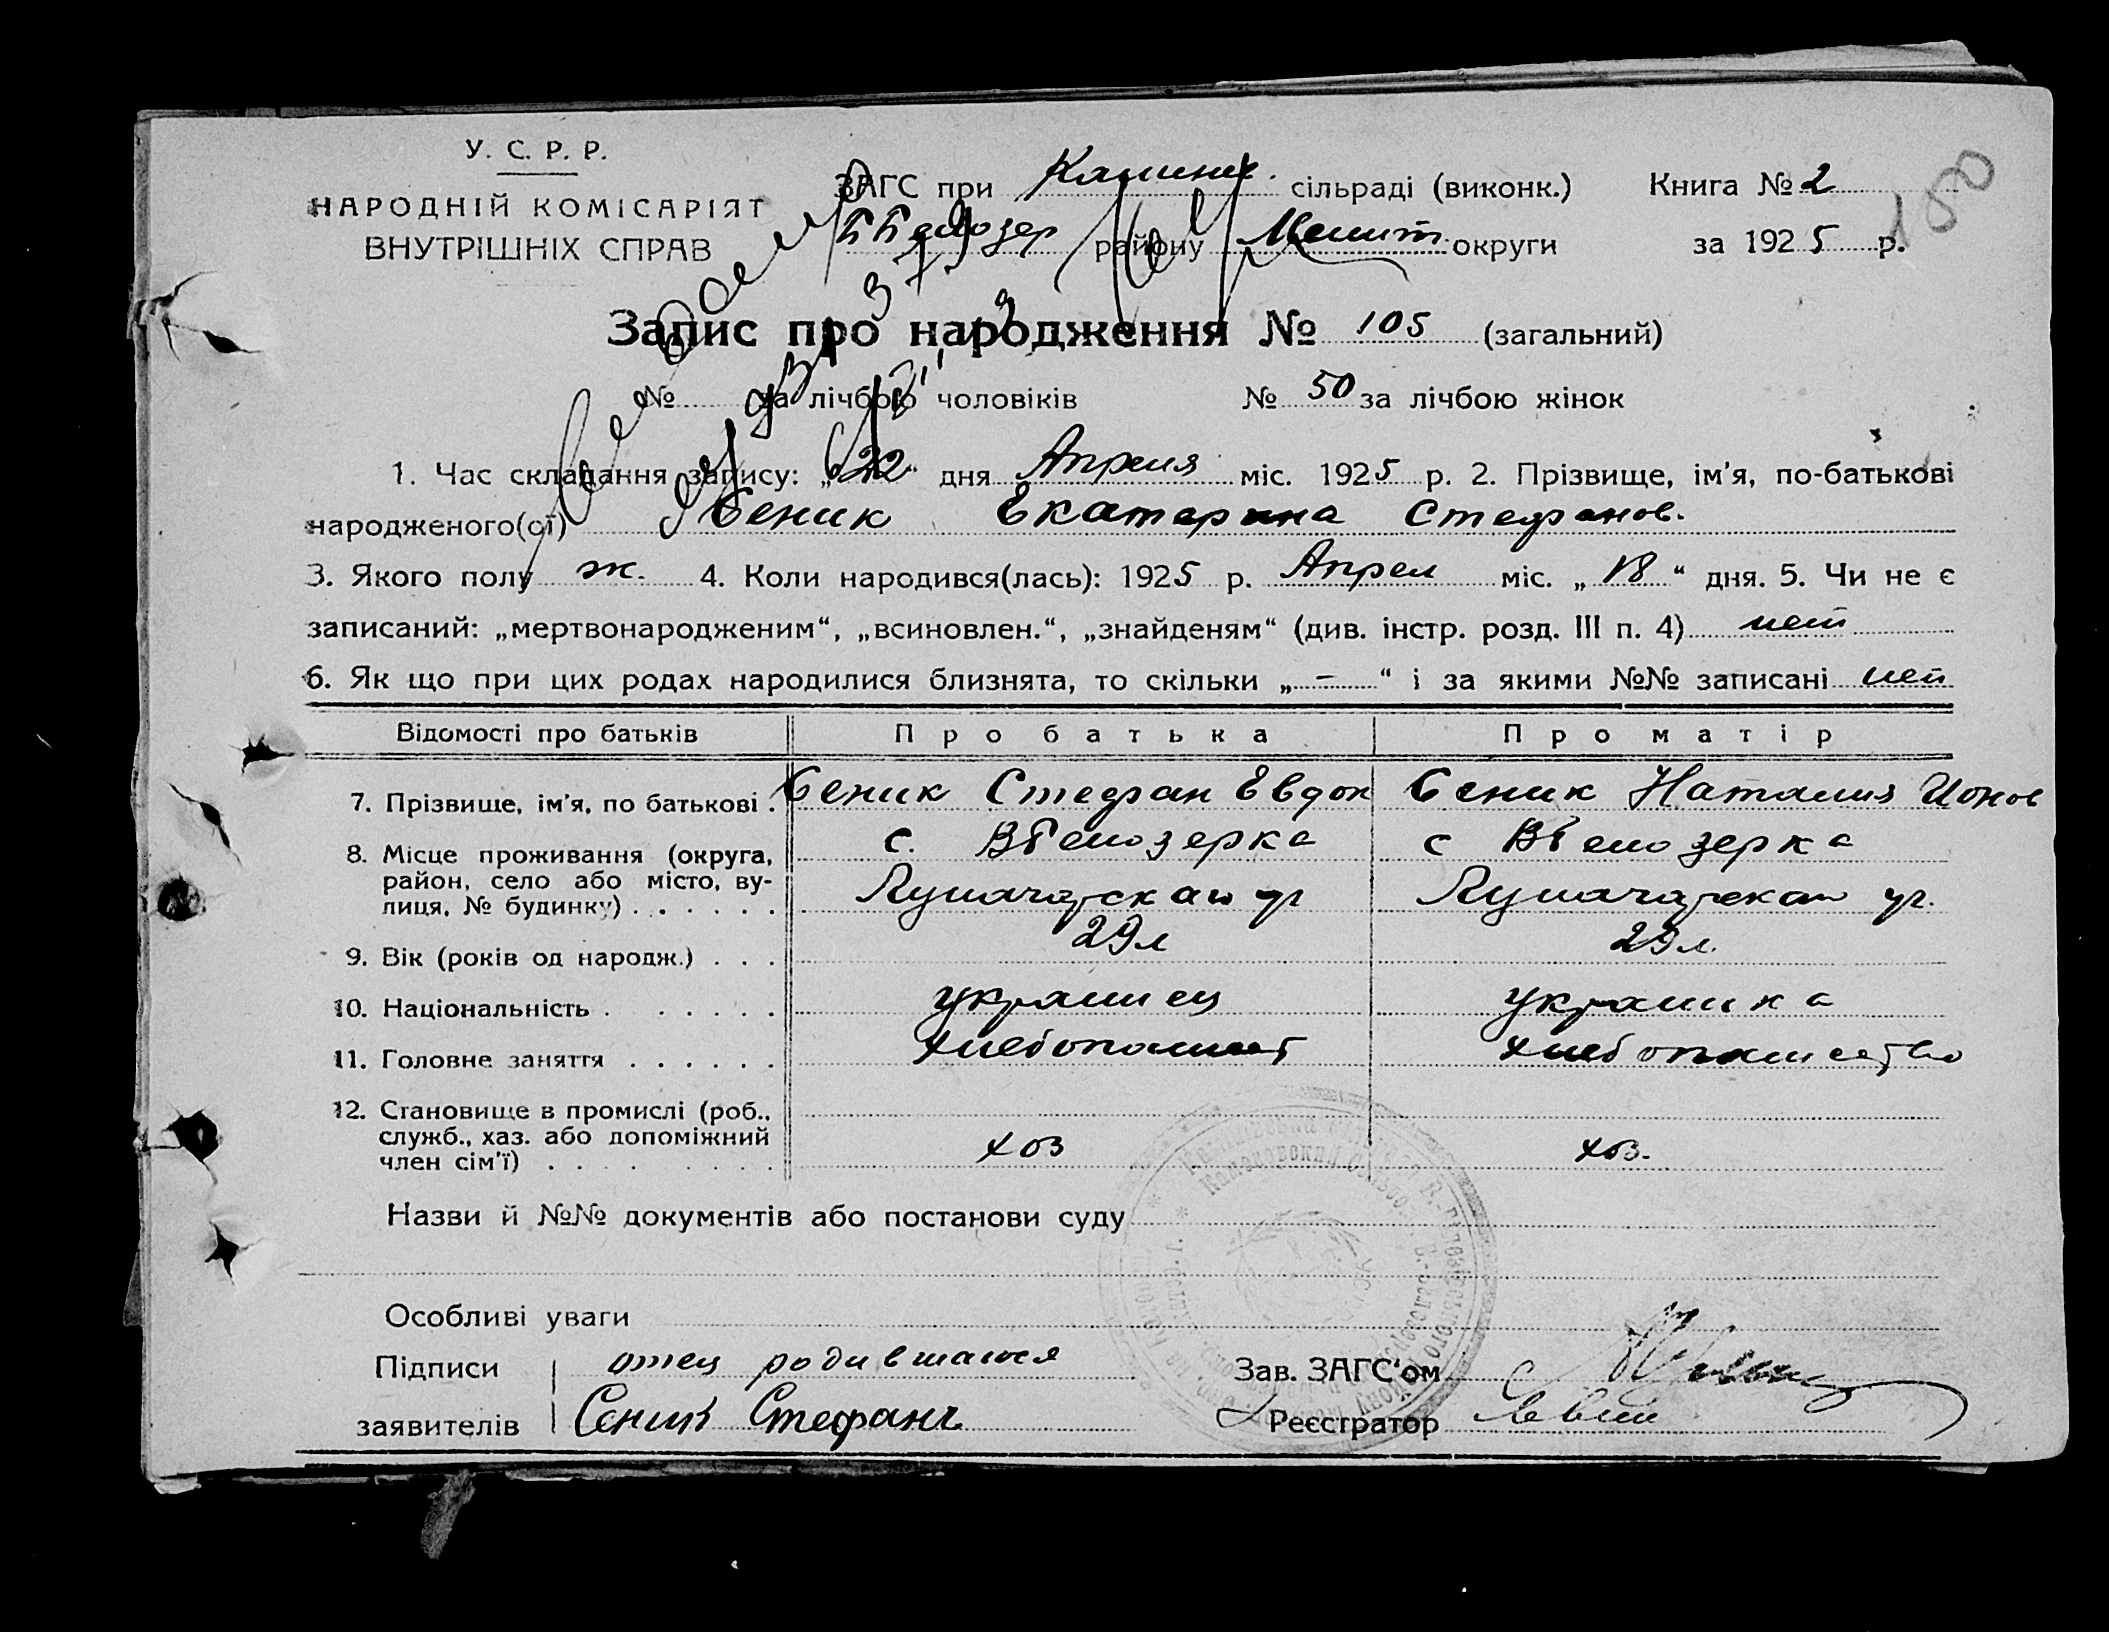 У. С. Р. Р.
НАРОДНІЙ КОМІСАРІЯТ
ВНУТРІШНІХ СПРАВ
ЗАГС при Калинов. сільраді (виконк.) Книга № 2
ББелозер району Мелит. округи за 1925 р.
150
Запис про народження № 105 (загальний)
№ за лічбою чоловіків № 50 за лічбою жінок
1. Час складання запису: „22“ дня Апреля міс. 1925 р. 2. Прізвище, ім'я, по-батькові
народженого(ої) Сеник Екатерина Стефанов.
3. Якого полу ж. 4. Коли народився(лась): 1925 р. Апрел міс. „18“ дня. 5. Чи не є
записаний: „мертвонародженим“, „всиновлен.“, „знайденям“ (див. інстр. розд. III п. 4) нет
6. Як що при цих родах народилися близнята, то скільки „-“ і за якими №№ записані нет
Відомості про батьків Про батька Про матір
7. Прізвище, ім'я, по батькові . Сеник Стефан Евдок Сеник Наталия Ионов
8. Місце проживання (округа, с. ВБелозерка с ВБелозерка
район, село або місто, ву-
лиця, № будинку) . . . . . . ул ул.
9. Вік (років од народж.) . . . 29л 29л.
10. Національність . . . . . . украинец украинка
11. Головне заняття . . . . . . хлебопашест хлебопашество
12. Становище в промислі (роб.,
служб., хаз. або допоміжний хоз хоз.
член сім'ї) . . . . . . . .
Назви й №№ документів або постанови суду
Особливі уваги
Підписи отец родившагося Зав. ЗАГС'ом
заявителів Сеник Стефан Реєстратор